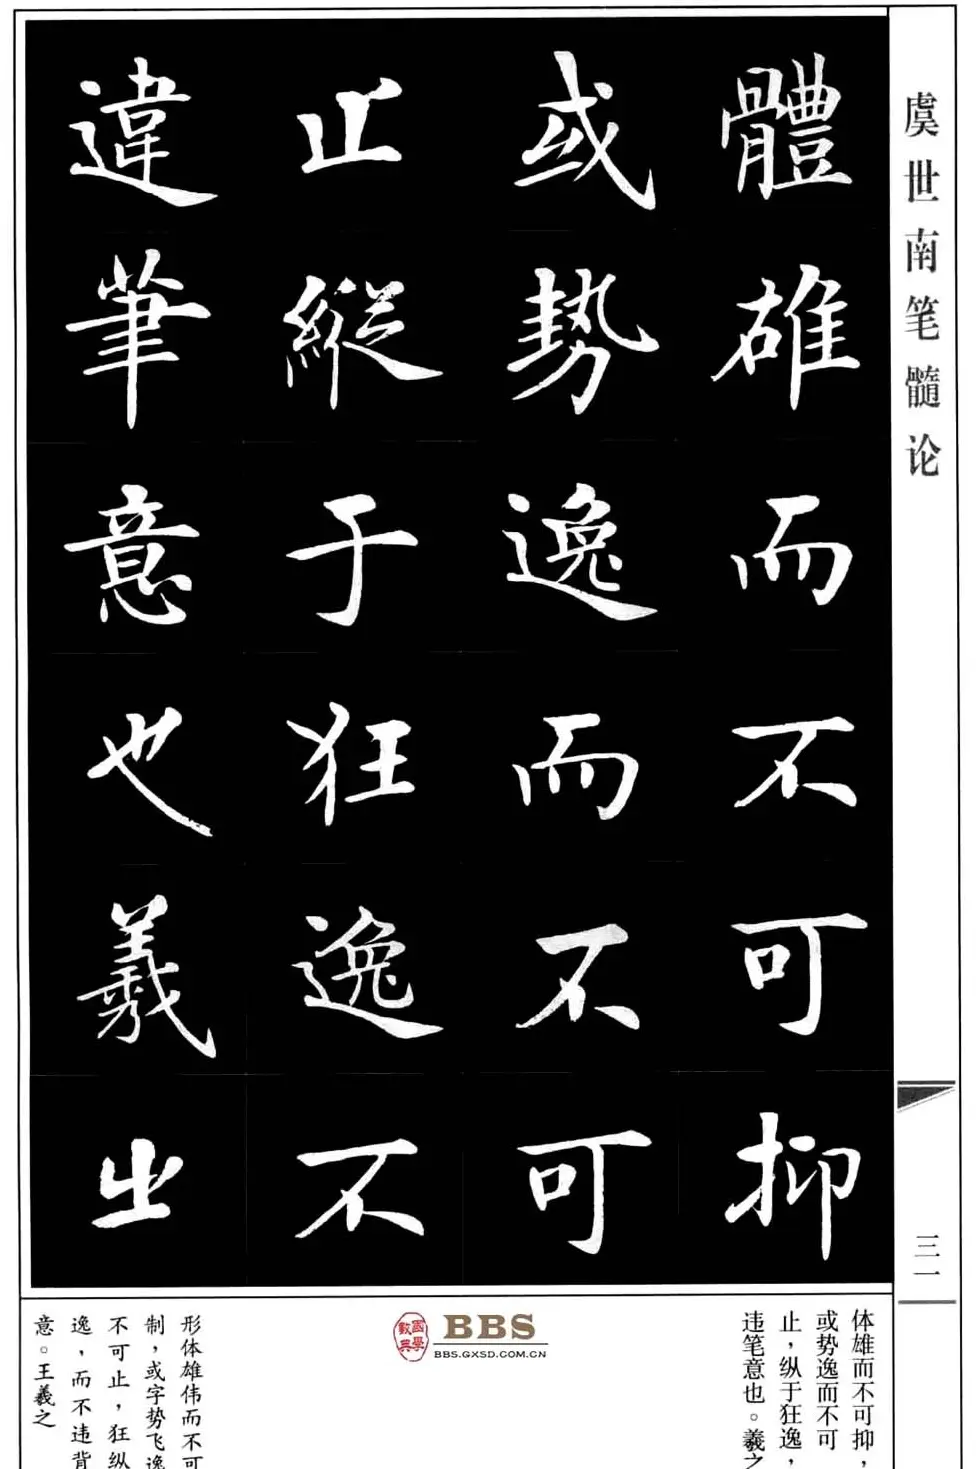 虞世南笔髓论
體雄而不可抑
或势逸而不可
止縱于狂逸不
違筆意也羲出
三一
体雄而不可抑，
或势逸而不可
止，纵于狂逸，
违笔意也。羲之
國學數典
BBS
BBS.GXSD.COM.CN
形体雄伟而不可
制，或字势飞逸
不可止，狂纵
逸，而不违背
意。王羲之